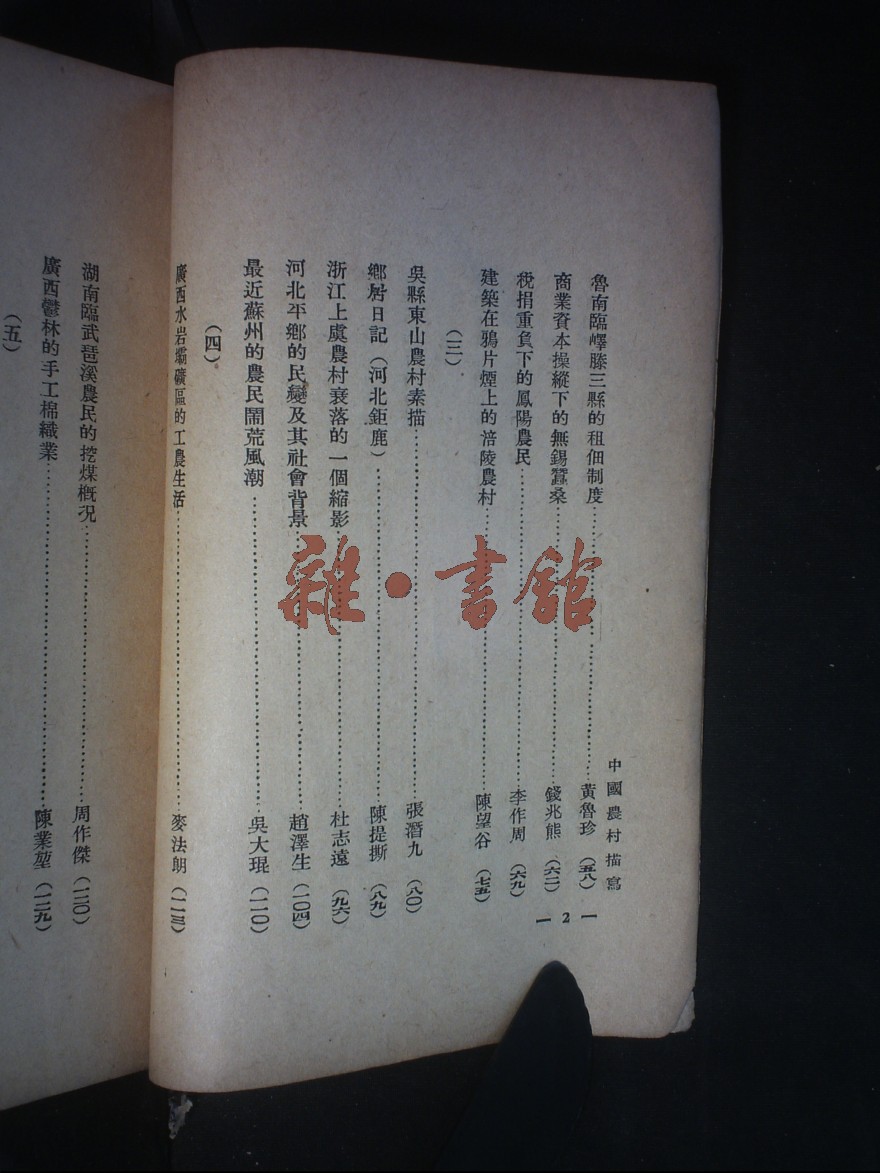 中國農村描寫
— 2 —
魯南臨嶧滕三縣的租佃制度……黃魯珍(五八)
商業資本操縱下的無錫蠶桑……錢兆熊(六二)
稅捐重負下的鳳陽農民……李作周(六九)
建築在鴉片煙上的涪陵農村……陳望谷(七五)
(三)
吳縣東山農村素描……張潛九(八〇)
鄉居日記(河北鉅鹿)……陳提撕(八九)
浙江上虞農村衰落的一個縮影……杜志遠(九六)
河北平鄉的民變及其社會背景……趙澤生(一〇四)
最近蘇州的農民鬧荒風潮……吳大琨(一一〇)
(四)
廣西水岩壩礦區的工農生活……麥法朗(一一三)
湖南臨武琶溪農民的挖煤概況……周作傑(一二〇)
廣西鬱林的手工棉織業……陳業堃(一二九)
(五)
雜·書館